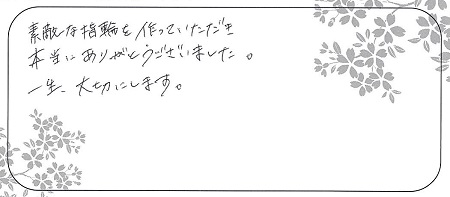 素敵な指輪を作っていただき
本当にありがとうございました。
一生、大切にします。